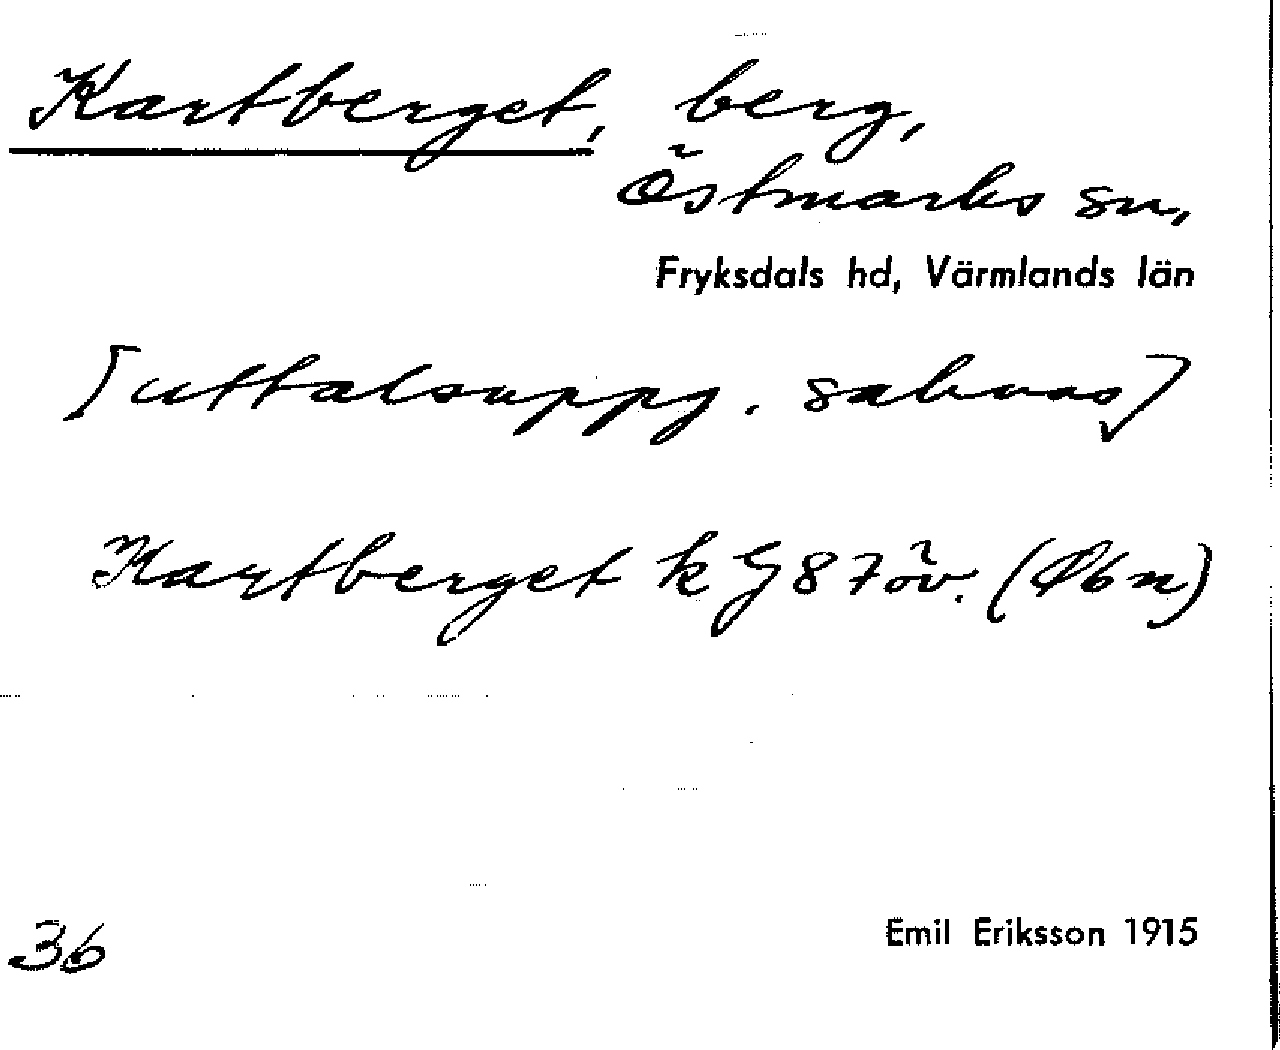 Kartberget, berg,
Östmarks sn,
Fryksdals hd, Värmlands län
[uttalsuppg. saknas]
Kartberget k G 87 öv. (Öbn)
36
Emil Eriksson 1915